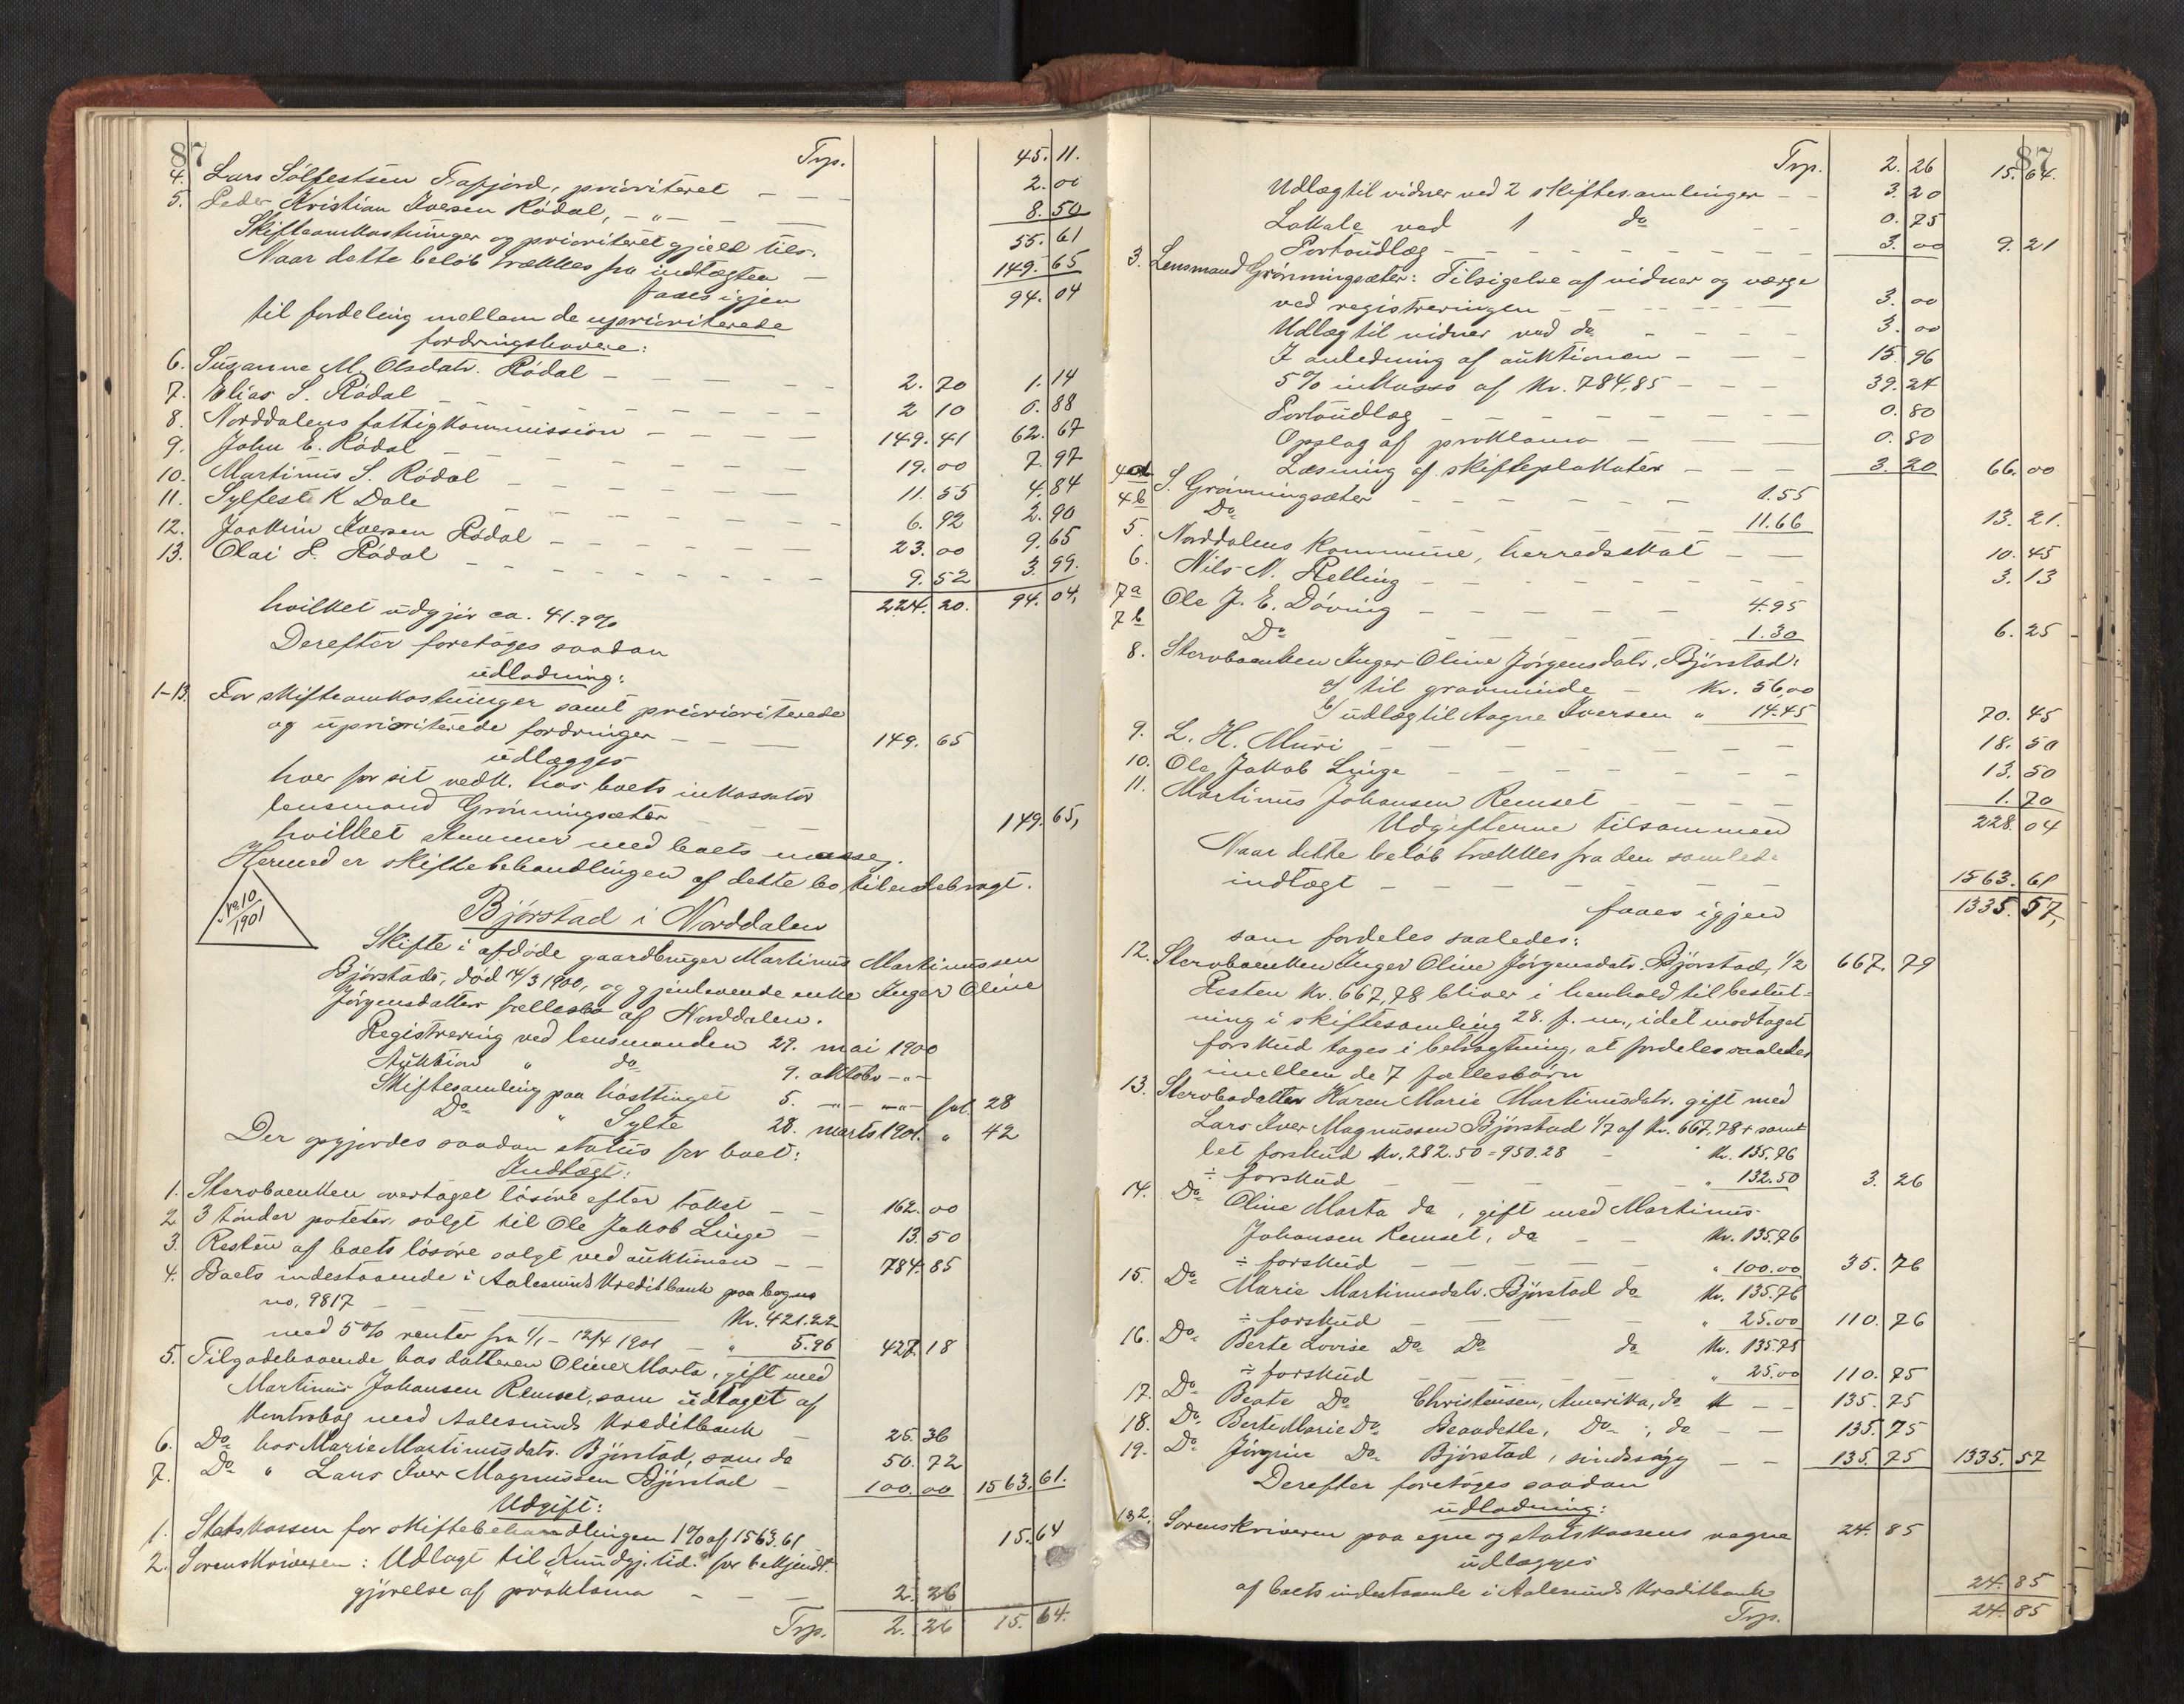 87
Trp. 45.11.
4. Lars Sölfestsen Tafjord, prioriteret — 2.00
5. Peder Kristian Iversen Rödal, — " — 8.50
Skifteomkostninger og prioriteret gjæld tils. 55.61
Naar dette belöb trækkes fra indtægten — 149.65
faaes igjen 94.04
til fordeling mellem de uprioriterede
fordringshavere:
6. Susanne M. Olsdatr. Rödal — 2.70 1.14
7. Elias S. Rödal — 2 10 0.88
8. Norddalens fattigkommission — 149.41 62.67
9. John E. Rödal — 19.00 7.97
10. Martinus S. Rödal — 11.55 4.84
11. Sylfest K Dale — 6.92 2.90
12. Joakim Iversen Rödal — 23.00 9.65
13. Olai P. Rödal — 9.52 3.99.
hvilket udgjör ca. 41.9% 224.20. 94.04,
Derefter foretoges saadan
udlodning:
1-13. For skifteomkostninger samt prioriterede
og uprioriterede fordringer — 149.65
udlægges
hver for sit vedk. hos boets inkassator
lensmand Grönningsæter 149.65,
hvilket stemmer med boets masse.
Hermed er skiftebehandlingen af dette bo tilendebragt.
No. 10
1901
Bjørstad i Norddalen
Skifte i afdöde gaardbruger Martinus Martinussen
Björstads, död 14/3 1900, og gjenlevende enke Inger Oline
Jörgensdatters fællesbo af Norddalen.
Registrering ved lensmanden 29. mai 1900
Auktion " do 9. oktober — " —
Skiftesamling paa hösttinget 5. — " — — " — fol. 28
Do " Sylte 28. marts 1901. " 42
Der opgjordes saadan status for boet:
Indtægt:
1. Stervboenken overtaget lösöre efter takst — 162.00
2 3 tönder poteter, solgt til Ole Jakob Linge — 13.50
3. Resten af boets lösöre solgt ved auktionen — 784.85
4. Boets indestaaende i Aalesunds Kreditbank paa bog
no. 9817 — Kr. 421.22
med 5% renter fra 1/1 – 12/4 1901 — " 5.96 427.18
5. Tilgodehavende hos datteren Oline Marta, gift med
Martinus Johansen Remset, som udtaget af
kontrabog med Aalesunds Kreditbank — 25.36
6. Do hos Marie Martinusdatr. Björstad, som do 50.72
7. Do " Lars Iver Magnussen Björstad — 100.00 1563.61.
Udgift:
1. Statskassen for skiftebehandlingen 1% af 1563.61 15.64
2. Sorenskriveren: Udlagt til "Kundgj.tid." for bekjendt-
gjörelse af proklama — 2.26
Trp. 2.26 15.64.
87
Trp. 2.26 15.64.
Udlæg til vidner ved 2 skiftesamlinger — 3.20
Lokale ved 1 do — 0.75
Portoudlæg — 3.00 9.21
3. Lensmand Grönningsæter: Tilsigelse af vidner og værge
ved registreringen — 3.00
Udlæg til vidner ved do — 3.00
I anledning af auktionen — 15.96
5% inkasso af Kr. 784,85 — 39.24
Portoudlæg — 0.80
Opslag af proklama — 0.80
Læsning af skifteplakater — 3.20 66.00
4a S. Grönningsæter — 1.55
4b Do — 11.66 13.21.
5. Norddalens kommune, herredsskat — 10.45
6. Nils N. Relling — 3.13
7a Ole J. E. Döving — 4.95
7b Do — 1.30 6.25
8. Stervboenken Inger Oline Jörgensdatr. Björstad:
a/ til gravminde — Kr. 56,00
b/ udlæg til Aagne Iversen " 14.45 70.45
9. L. H. Muri — 18.50
10. Ole Jakob Linge — 13.50
11. Martinus Johansen Remset — 1.70
Udgifterne tilsammen 228.04
Naar dette belöb trækkes fra den samlede
indtægt — 1563.61
faaes igjen 1335.57,
som fordeles saaledes:
12. Stervboenken Inger Oline Jörgensdatr. Björstad, 1/2 667.79
Resten Kr. 667,78 bliver i henhold til beslut-
ning i skiftesamling 28. f. m., idet modtaget
forskud tages i betragtning, at fordeles saaledes
imellem de 7 fællesbörn
13. Stervbodatter Karen Marie Martinusdatr. gift med
Lars Iver Magnussen Björstad 1/7 af Kr. 667.78 + samt-
let forskud Kr. 282.50 = 950.28 — Kr. 135.76
÷ forskud — " 132.50 3.26
14. Do Oline Marta do, gift med Martinus
Johansen Remset, do — Kr. 135.76
÷ forskud — " 100.00 35.76
15. Do Marie Martinusdatr. Björstad do Kr. 135.76
÷ forskud — " 25.00 110.76
16. Do Berte Lovise Do Do do Kr. 135.75
÷ forskud — " 25.00 110.75
17. Do Beate Do Christensen, Amerika, do — 135.75
18. Do Berte Marie Do Do ; do — 135.75
19. Do Jörgine Do Björstad, sindssyg — 135.75 1335.57
Derefter foretoges saadan
udlodning:
1&2. Sorenskriveren paa egne og statskassens vegne 24.85
udlægges
af boets indestaaende i Aalesunds Kreditbank 24.85
Trp. 24.85